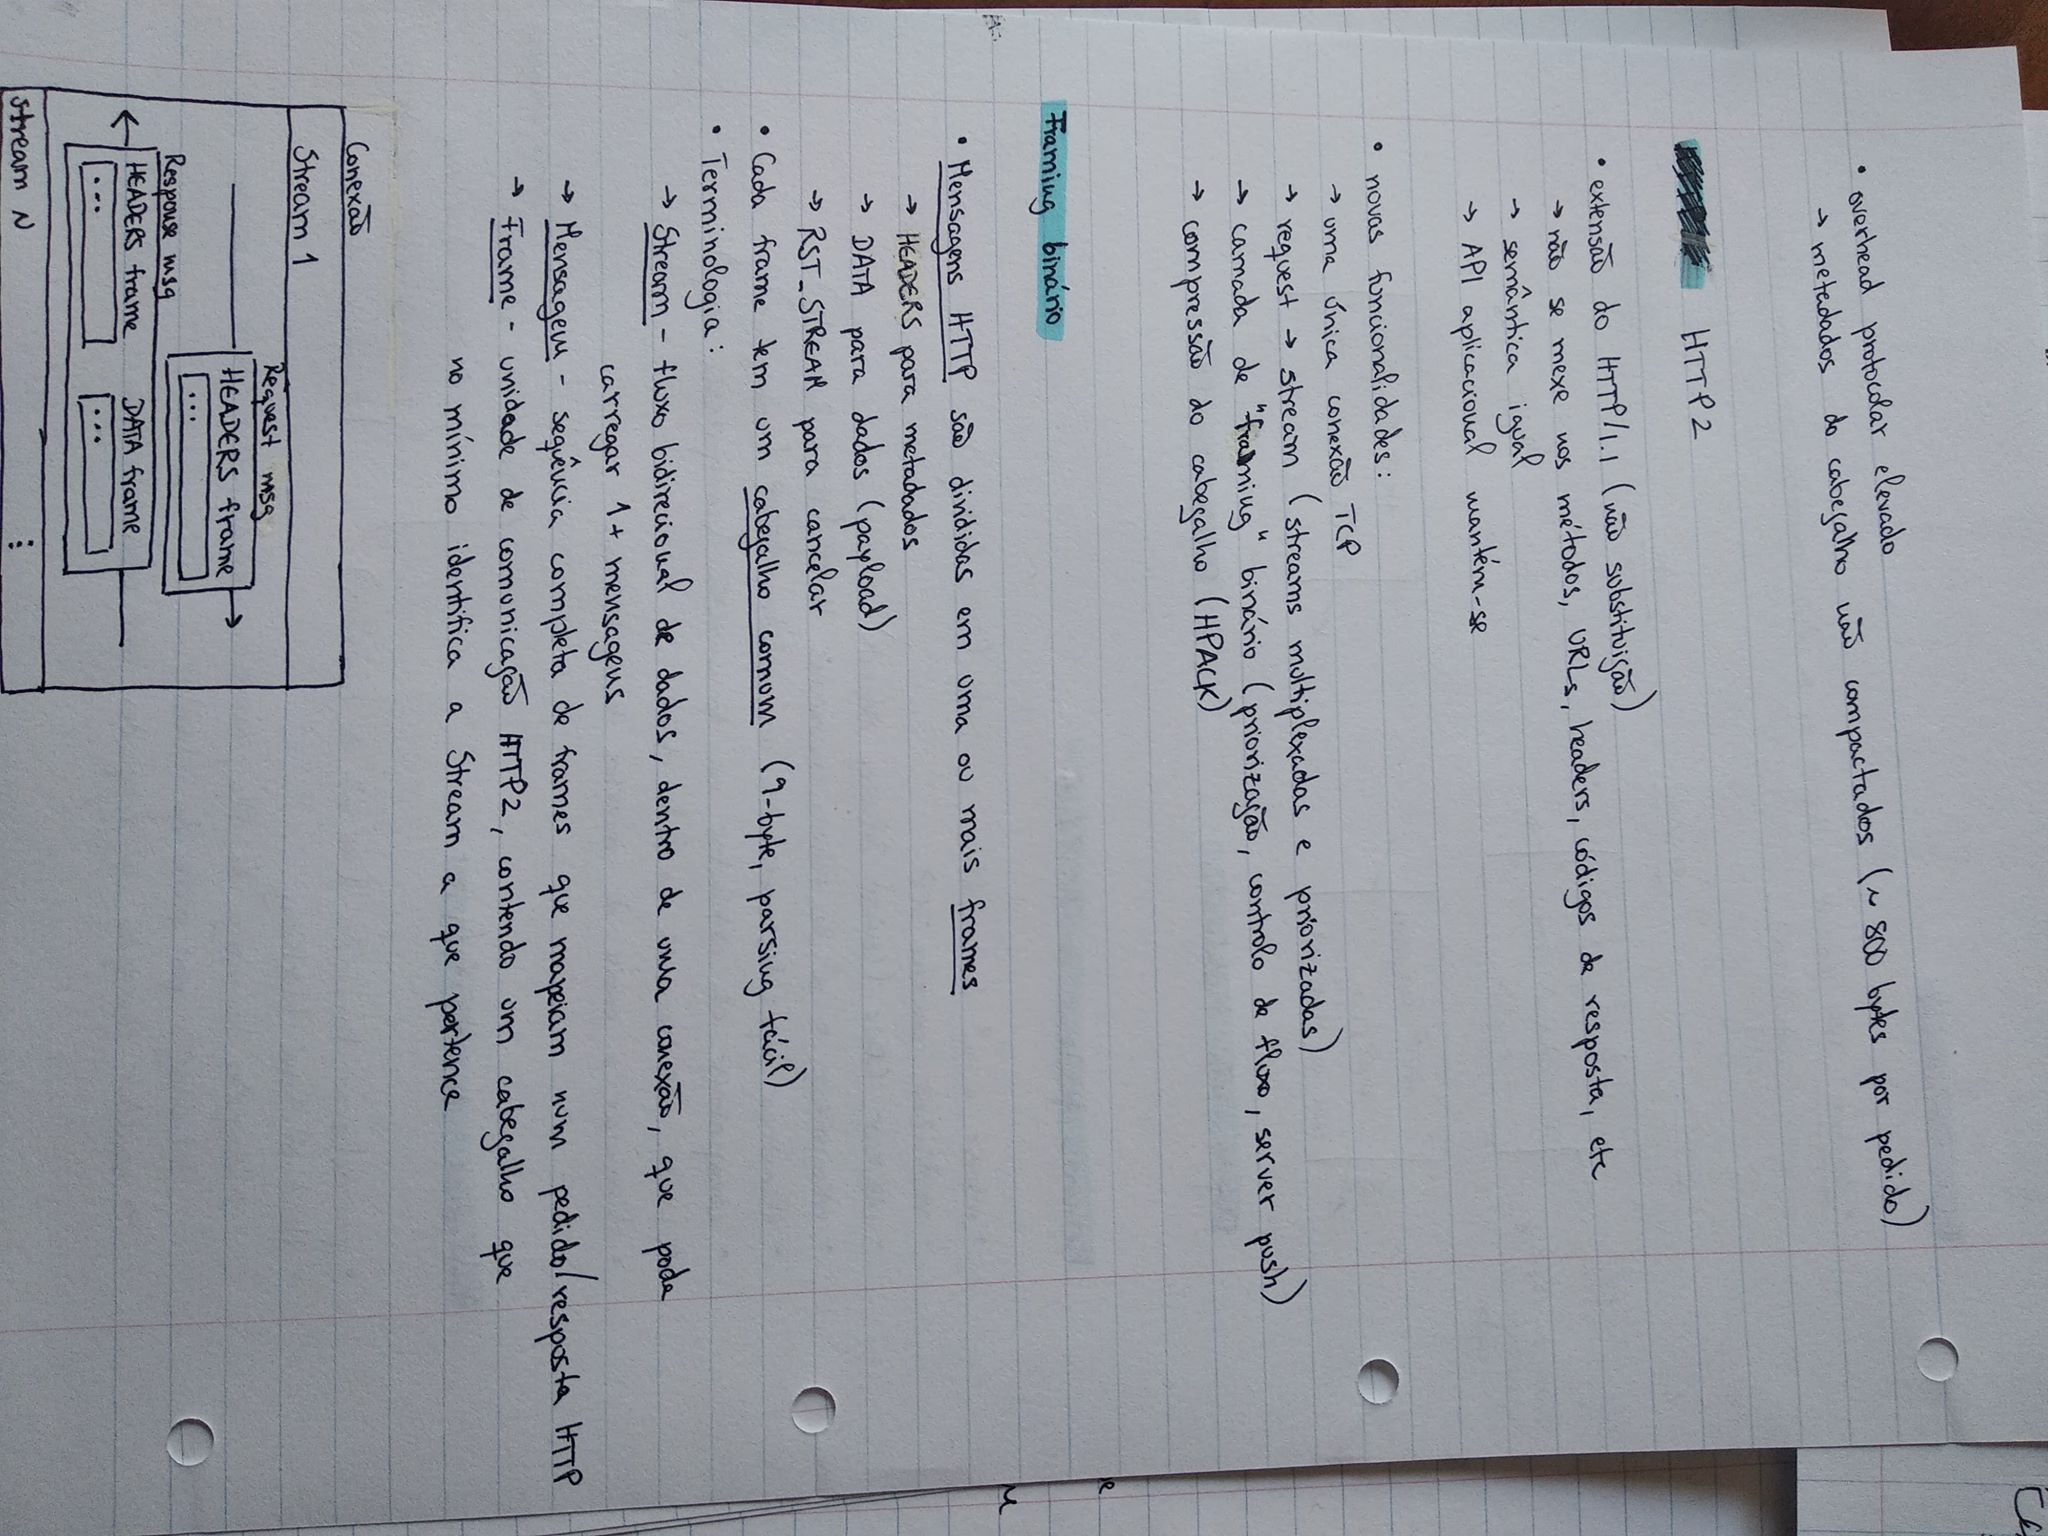 • overhead protocolar elevado
→ metadados do cabeçalho não compactados (~ 800 bytes por pedido)
HTTP2
• extensão do HTTP/1.1 (não substituição)
→ não se mexe nos métodos, URLs, headers, códigos de resposta, etc
→ semântica igual
→ API aplicacional mantém-se
• novas funcionalidades:
→ uma única conexão TCP
→ request → stream (streams multiplexadas e priorizadas)
→ camada de "framing" binário (priorização, controlo de fluxo, server push)
→ compressão do cabeçalho (HPACK)
Framing binário
• Mensagens HTTP são divididas em uma ou mais frames
→ HEADERS para metadados
→ DATA para dados (payload)
→ RST_STREAM para cancelar
• Cada frame tem um cabeçalho comum (9-byte, parsing fácil)
• Terminologia:
→ Stream - fluxo bidirecional de dados, dentro de uma conexão, que pode
carregar 1+ mensagens
→ Mensagem - sequência completa de frames que mapeiam num pedido/resposta HTTP
→ Frame - unidade de comunicação HTTP2, contendo um cabeçalho que
no mínimo identifica a Stream a que pertence
Conexão
Stream 1
Request msg
HEADERS frame
...
Response msg
HEADERS frame DATA frame
... ...
stream N ⋮